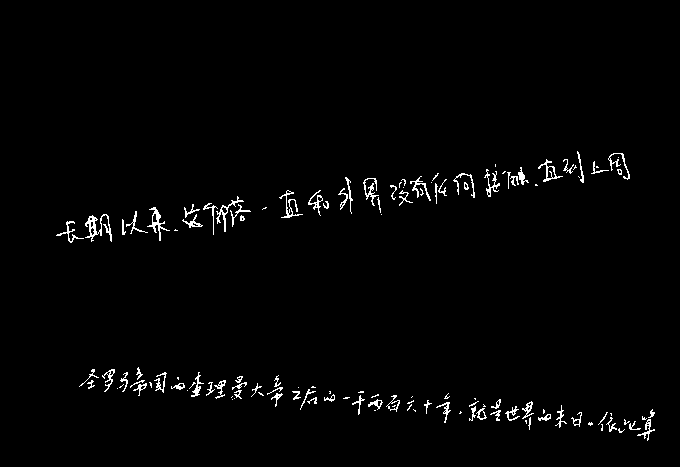 长期以来,这部落一直和外界没有任何接触,直到上周
圣罗马帝国的查理曼大帝之后的一千两百六十年,就是世界的末日。依此算